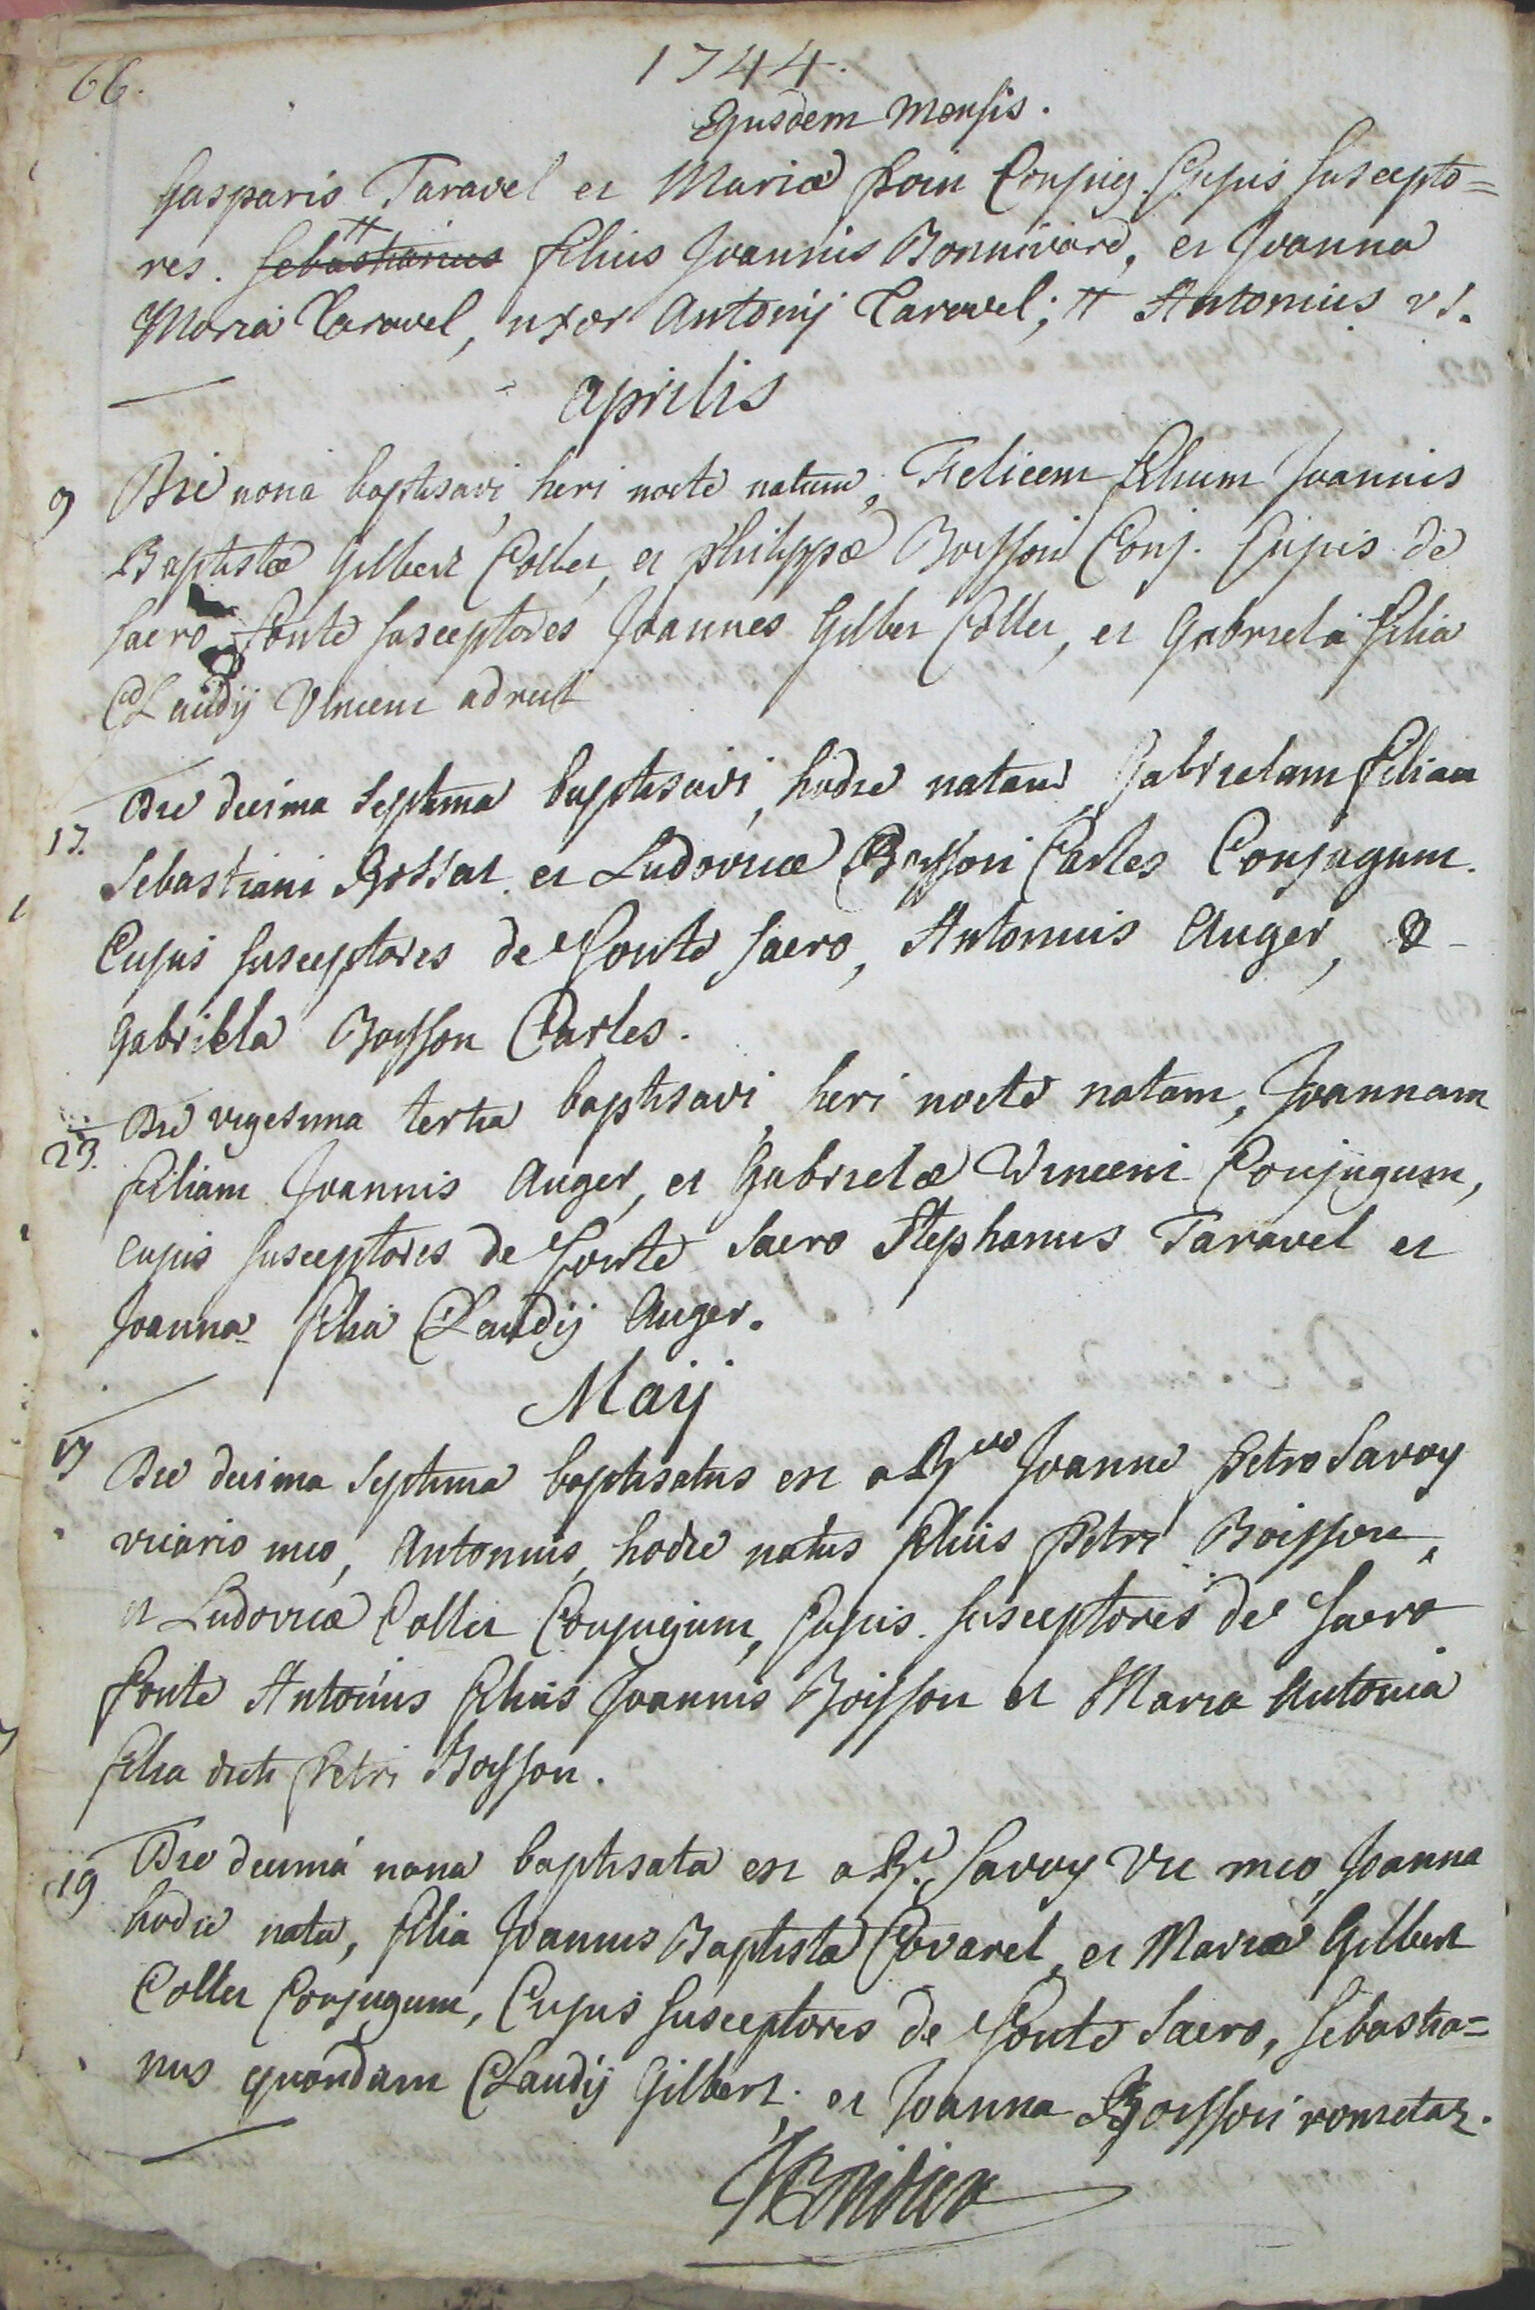 66.
1744.
Ejusdem Mensis.
Gasparis Taravel et Mariæ Poin Conjug. Cujus suscepto=
res. # Sebastianus filius Joannis Bonnivard, et Joanna
Maria Taravel, uxor Antonij Taravel; # Antonius vs.
aprilis
9 Die nona baptisavi, heri nocte natum, Felicem filium Joannis
Baptistæ Gilbert Collet, et Philippæ Boisson Conj. Cujus de
sacro fonte susceptores Joannes Gilber Collet, et Gabriela filia
Claudij Vincent adruit
17. Die decima septima baptisavi, hodie natam Gabrielam filiam
Sebastiani Rossat et Ludovicæ Boysson Carles Conjugum.
Cujus susceptores de fonte sacro, Antonius Auger, &
Gabriela Boysson Carles.
23. Die vigesima tertia baptisavi, heri nocte natam, Joannam
filiam Joannis Auger, et Gabrielæ Vincent Conjugum,
cujus susceptores de fonte sacro Stephanus Taravel et
Joanna filia Claudij Auger.
Maij
17 Die decima septima baptisatus est a Rdo Joanne Petro Savoy
vicario meo, Antonius, hodie natus filius Petri Boisson,
et Ludovicæ Collet Conjugum, Cujus susceptores de sacro
fonte Antonius filius Joannis Boisson et Maria Antonia
filia dicti Petri Boisson.
19 Die decima nona baptisata est a Rd. Savoy Vic meo Joanna
hodie nata, filia Joannis Baptista Covarel, et Mariæ Gilbert
Collet Conjugum, Cujus susceptores de fonte sacro, Sebastia=
nus quondam Claudij Gilbert. et Joanna Boisson rometaz.